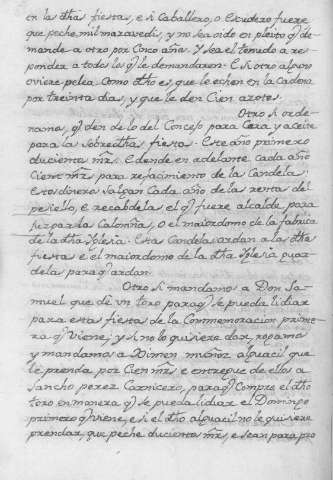 en las dhas fiestas, e si Caballero, o Escudero fuere
que peche mil maravedis, y no sea oido en pleito q̃ de-
mande a otro por Cinco años. Y sea el tenudo a res-
ponder a todos los q̃ le demandaren. E si otro alguno
oviere pelea como dho es, que le echen en la Cadena
por treinta dias, y que le den Cien azotes.
Otro si orde-
namos, q̃ den de lo del Concejo para Cera, y aceite
para la sobredha fiesta. Este año primero
ducientos mrs. E dende en adelante cada año
Cient mrs para refacimiento de la Candela.
Estos dineros salgan Cada año de las rentas del
e recabdelas el q̃ fuere alcalde para
por la Caloñas, O el maiordomo de la fabrica
de la dha Iglesia. Estas Candelas ardan a las dhas
fiestas e el maiordomo de la dha Iglesia guar-
delas para q̃ ardan.
Otro si mandamos a Don Sa-
muel que dé un toro para q̃ se pueda lidiar
para esta fiesta de la Conmemoracion prime-
ra q̃ Viene; y si no lo quisiere dar, rogamos
y mandamos a Ximen muñoz alguacil que
le prenda por Cien mrs e entregue de ellos a
Sancho perez Carnicero, para q̃ Compre el dho
toro en manera q̃ se pueda lidiar el Domingo
primero q̃ viene, e si el dho alguacil no le quisiere
prendar, que peche ducientos mrs, e sean para pro